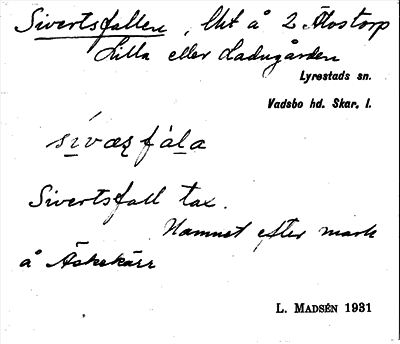 Sivertsfallen, lht å 2 Älvstorp
Lilla eller Ladugården
Lyrestads sn.
Vadsbo hd. Skar. l.
sívæʀfàla
Sivertsfall tax.
Namnet efter mark
å Äskekärr
L. MADSÉN 1931